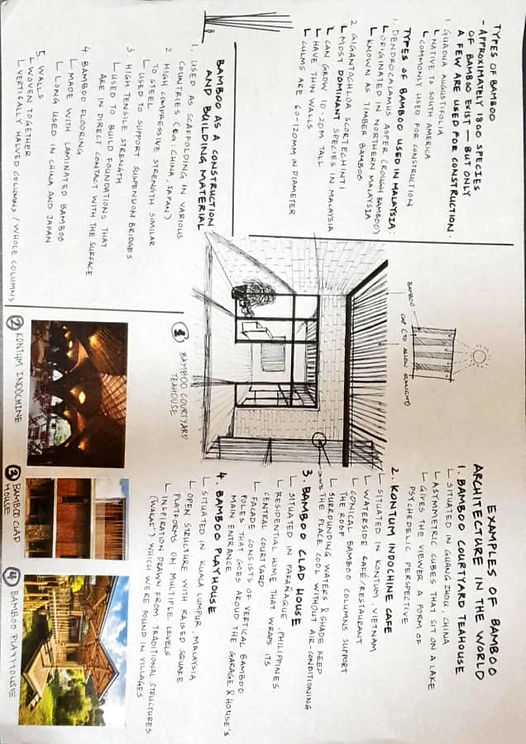 TYPES OF BAMBOO
- APPROXIMATELY 1300 SPECIES
OF BAMBOO EXIST — BUT ONLY
A FEW ARE USED FOR CONSTRUCTION.
1. GUADUA AUGUSTIFOLIA
NATIVE TO SOUTH AMERICA
COMMONLY USED FOR CONSTRUCTION
TYPES OF BAMBOO USED IN MALAYSIA:
1. DENDROCALAMUS ASPER (ROUGH BAMBOO)
ORIGINATED IN NORTHERN MALAYSIA
KNOWN AS TIMBER BAMBOO
2. GIGANTOCHLOA SCORTECHINII
MOST DOMINANT SPECIES IN MALAYSIA
CAN GROW 10-20M TALL
HAVE THIN WALLS
CULMS ARE 60-120MM IN DIAMETER
BAMBOO AS A CONSTRUCTION
AND BUILDING MATERIAL
1. USED AS SCAFFOLDING IN VARIOUS
COUNTRIES (EG: CHINA, JAPAN)
2. HIGH COMPRESSIVE STRENGTH SIMILAR
TO STEEL
USED TO SUPPORT SUSPENSION BRIDGES
3. HIGH TENSILE STRENGTH
USED TO BUILD FOUNDATIONS THAT
ARE IN DIRECT CONTACT WITH THE SURFACE
4. BAMBOO FLOORING
MADE WITH LAMINATED BAMBOO
LONG USED IN CHINA AND JAPAN
5. WALLS
WOVEN TOGETHER
VERTICALLY HALVED COLUMNS / WHOLE COLUMNS
BAMBOO
1 BAMBOO COURTYARD
TEAHOUSE
2 KONTUM INDOCHINE
3 BAMBOO CLAD
HOUSE
4 BAMBOO PLAYHOUSE
EXAMPLES OF BAMBOO
ARCHITECTURE IN THE WORLD
1. BAMBOO COURTYARD TEAHOUSE
SITUATED IN GUANGZHOU, CHINA
ASYMMETRIC CUBES THAT SIT ON A LAKE
GIVES THE VIEWER A FORM OF
PSYCHEDELIC PERSPECTIVE
2. KONTUM INDOCHINE CAFE
SITUATED IN KONTUM, VIETNAM
WATERSIDE CAFE/RESTAURANT
CONICAL BAMBOO COLUMNS SUPPORT
THE ROOF
SURROUNDING WATERS & SHADE KEEP
THE PLACE COOL WITHOUT AIR-CONDITIONING
3. BAMBOO CLAD HOUSE
SITUATED IN PARAÑAQUE, PHILIPPINES
RESIDENTIAL HOME THAT WRAPS ITS
CENTRAL COURTYARD
FACADE CONSISTS OF VERTICAL BAMBOO
POLES THAT GOES AROUND THE GARAGE & HOUSE'S
MAIN ENTRANCE
4. BAMBOO PLAYHOUSE
SITUATED IN KUALA LUMPUR, MALAYSIA
OPEN STRUCTURE WITH RAISED SQUARE
PLATFORMS ON MULTIPLE LEVELS
INSPIRATION DRAWN FROM TRADITIONAL STRUCTURES
(WAKAF) WHICH WERE FOUND IN VILLAGES